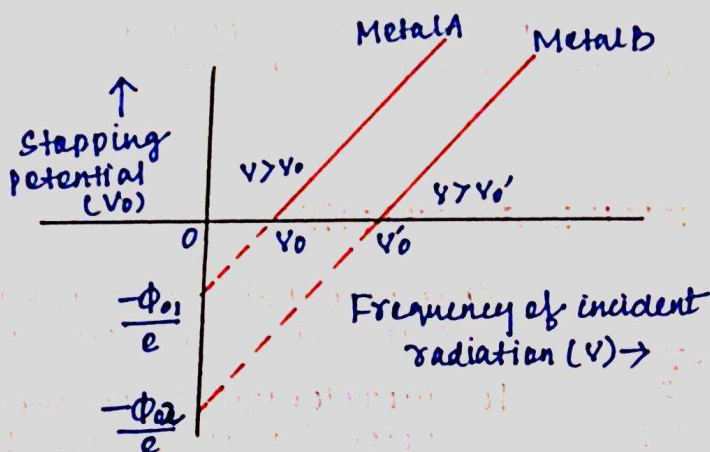 Metal A
Metal B
↑
Stopping
potential
(V₀)
ν>ν₀
ν>ν₀'
O
ν₀
ν₀'
-ϕ₀₁
e
Frequency of incident
radiation (ν) →
-ϕ₀₂
e